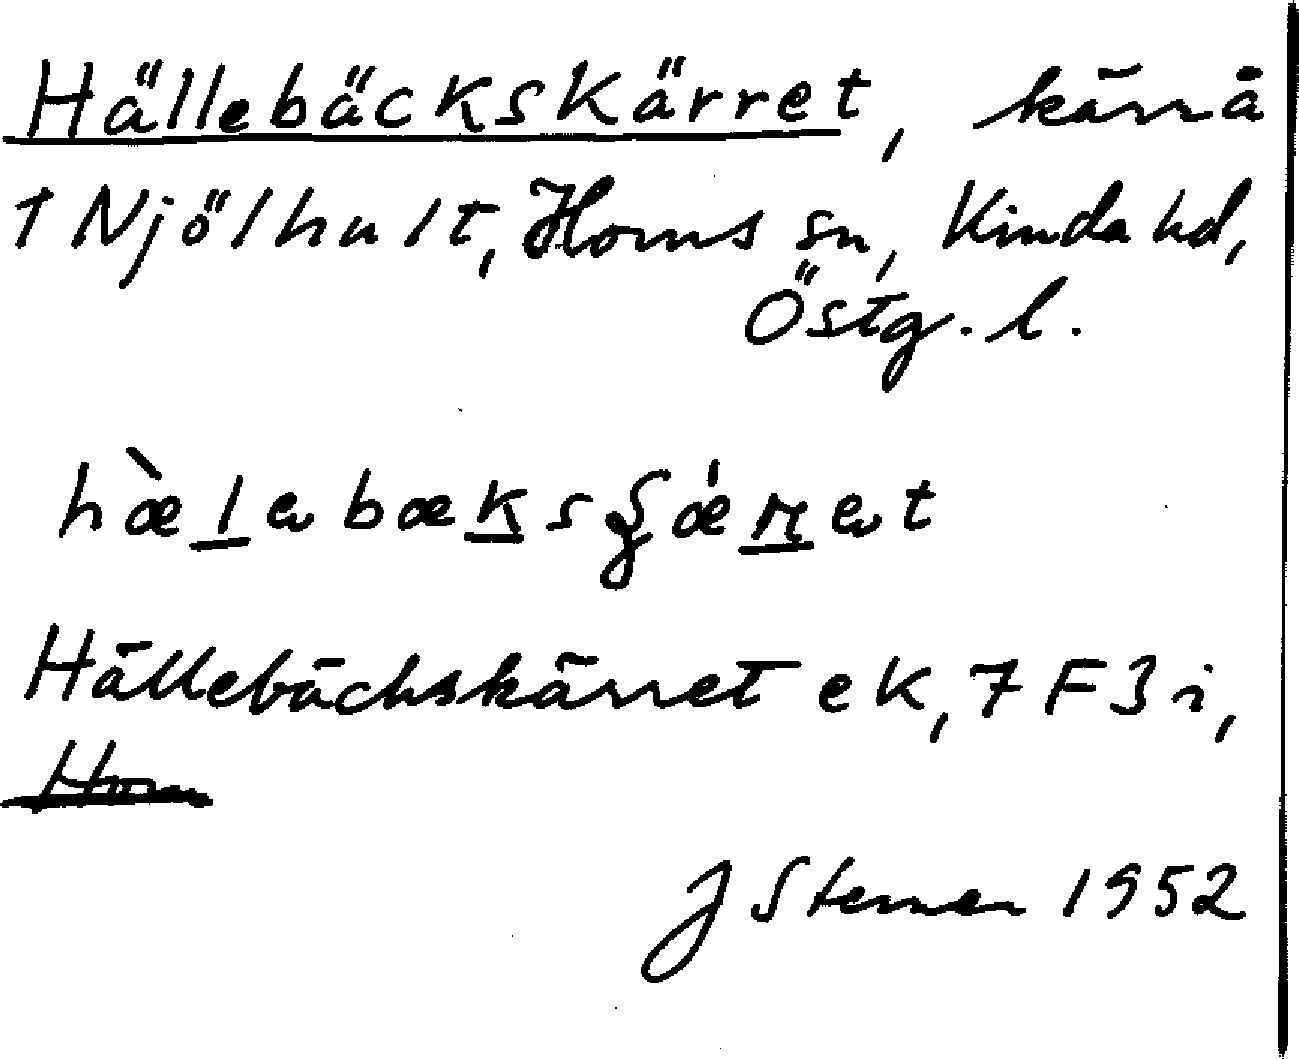 Hällebäckskärret, kärr å
1 Njölhult, Horns sn, Kinda hd,
Östg. l.
hæ̀lebæksʂǽret
Hällebäckskärret ek, 7F3i,
Horn
J Sterner 1952